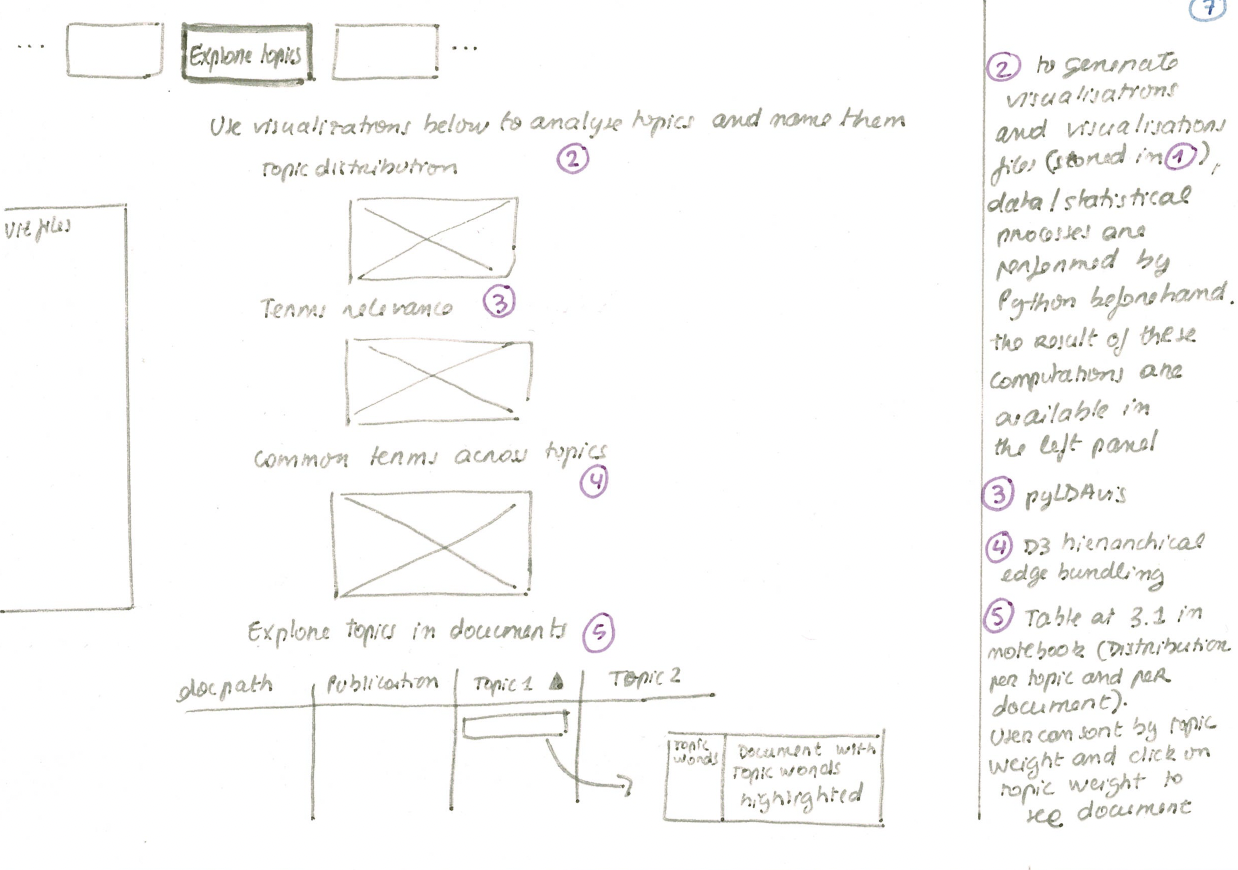 ...
Explore topics
...
Use visualizations below to analyse topics and name them
Topic distribution
2
Vis files
Terms relevance 3
Common terms across topics
4
Explore topics in documents 5
docpath Publication Topic 1 ▲ Topic 2
Topic
words
Document with
topic words
highlighted
7
2 to generate
visualisations
and visualisations
files (stored in 1),
data/statistical
processes are
performed by
Python beforehand.
the result of these
computations are
available in
the left panel
3 pyLDAvis
4 D3 hierarchical
edge bundling
5 Table at 3.1 in
notebook (Distribution
per topic and per
document).
User can sort by topic
weight and click on
topic weight to
see document